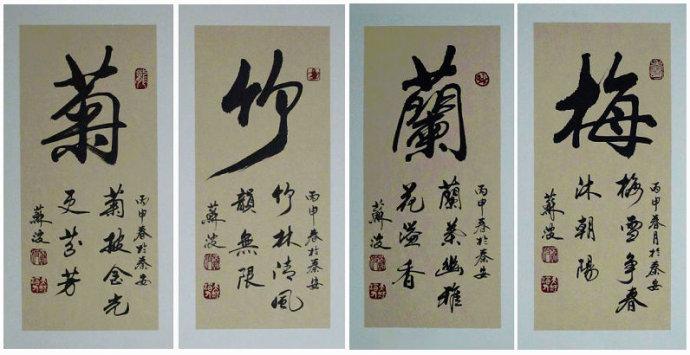 梅
丙申春月於秦安
梅雪争春
沐朝陽
蘇波
蘭
丙申春於秦安
蘭葉幽雅
花溢香
蘇波
竹
丙申春於秦安
竹林清風
韻無限
蘇波
菊
丙申春於秦安
菊披金光
更芬芳
蘇波